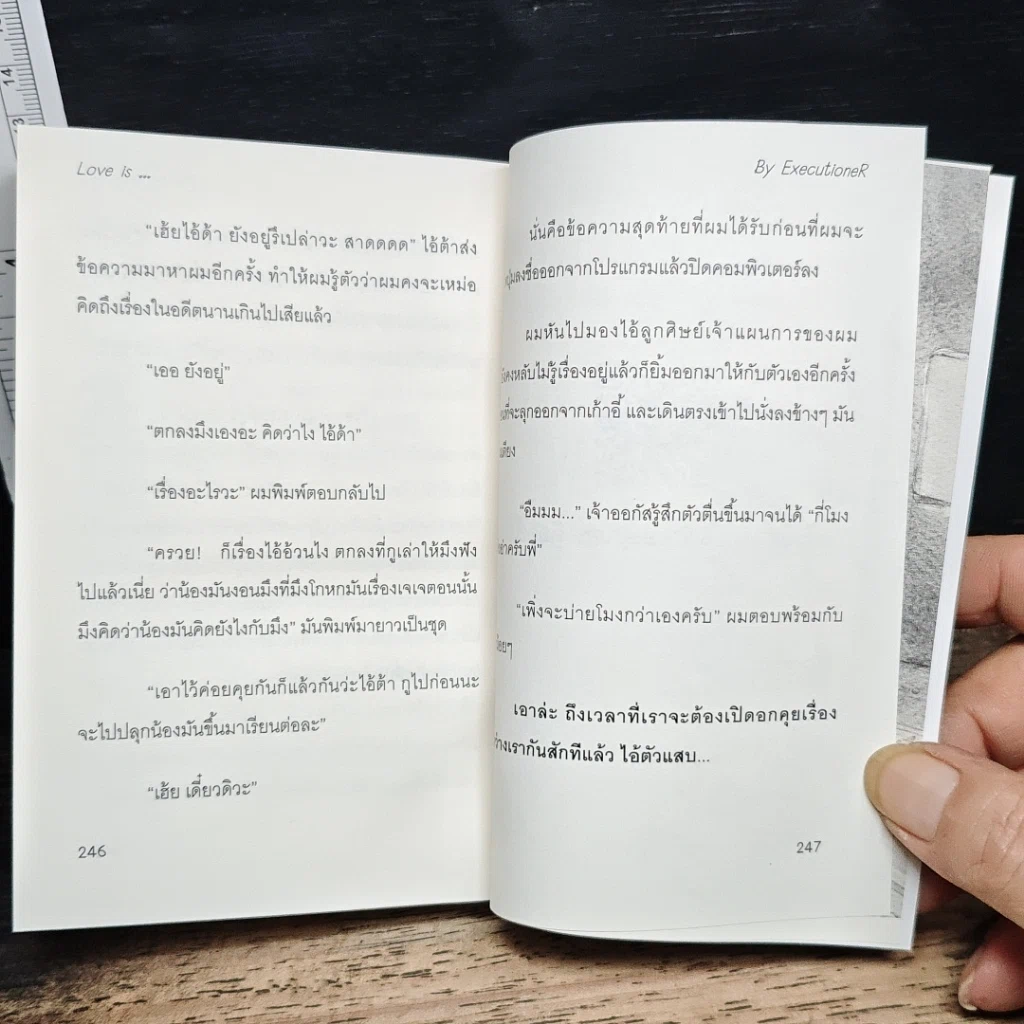 Love is ...
"เฮ้ยไอ้ด้า ยังอยู่รึเปล่าวะ สาดดดด" ไอ้ต้าส่ง
ข้อความมาหาผมอีกครั้ง ทำให้ผมรู้ตัวว่าผมคงจะเหม่อ
คิดถึงเรื่องในอดีตนานเกินไปเสียแล้ว
"เออ ยังอยู่"
"ตกลงมึงเองอะ คิดว่าไง ไอ้ด้า"
"เรื่องอะไรวะ" ผมพิมพ์ตอบกลับไป
"ครวย! ก็เรื่องไอ้อ้วนไง ตกลงที่กูเล่าให้มึงฟัง
ไปแล้วเนี่ย ว่าน้องมันงอนมึงที่มึงโกหกมันเรื่องเจเจตอนนั้น
มึงคิดว่าน้องมันคิดยังไงกับมึง" มันพิมพ์มายาวเป็นชุด
"เอาไว้ค่อยคุยกันก็แล้วกันว่ะไอ้ต้า กูไปก่อนนะ
จะไปปลุกน้องมันขึ้นมาเรียนต่อละ"
"เฮ้ย เดี๋ยวดิวะ"
246
By ExecutioneR
นั่นคือข้อความสุดท้ายที่ผมได้รับก่อนที่ผมจะ
ลงชื่อออกจากโปรแกรมแล้วปิดคอมพิวเตอร์ลง
ผมหันไปมองไอ้ลูกศิษย์เจ้าแผนการของผม
หลับไม่รู้เรื่องอยู่แล้วก็ยิ้มออกมาให้กับตัวเองอีกครั้ง
ที่จะลุกออกจากเก้าอี้ และเดินตรงเข้าไปนั่งลงข้างๆ มัน
"อืมมม..." เจ้าออกัสรู้สึกตัวตื่นขึ้นมาจนได้ "กี่โมง
ครับพี่"
"เพิ่งจะบ่ายโมงกว่าเองครับ" ผมตอบพร้อมกับ
เอาล่ะ ถึงเวลาที่เราจะต้องเปิดอกคุยเรื่อง
เรากันสักทีแล้ว ไอ้ตัวแสบ...
247
14